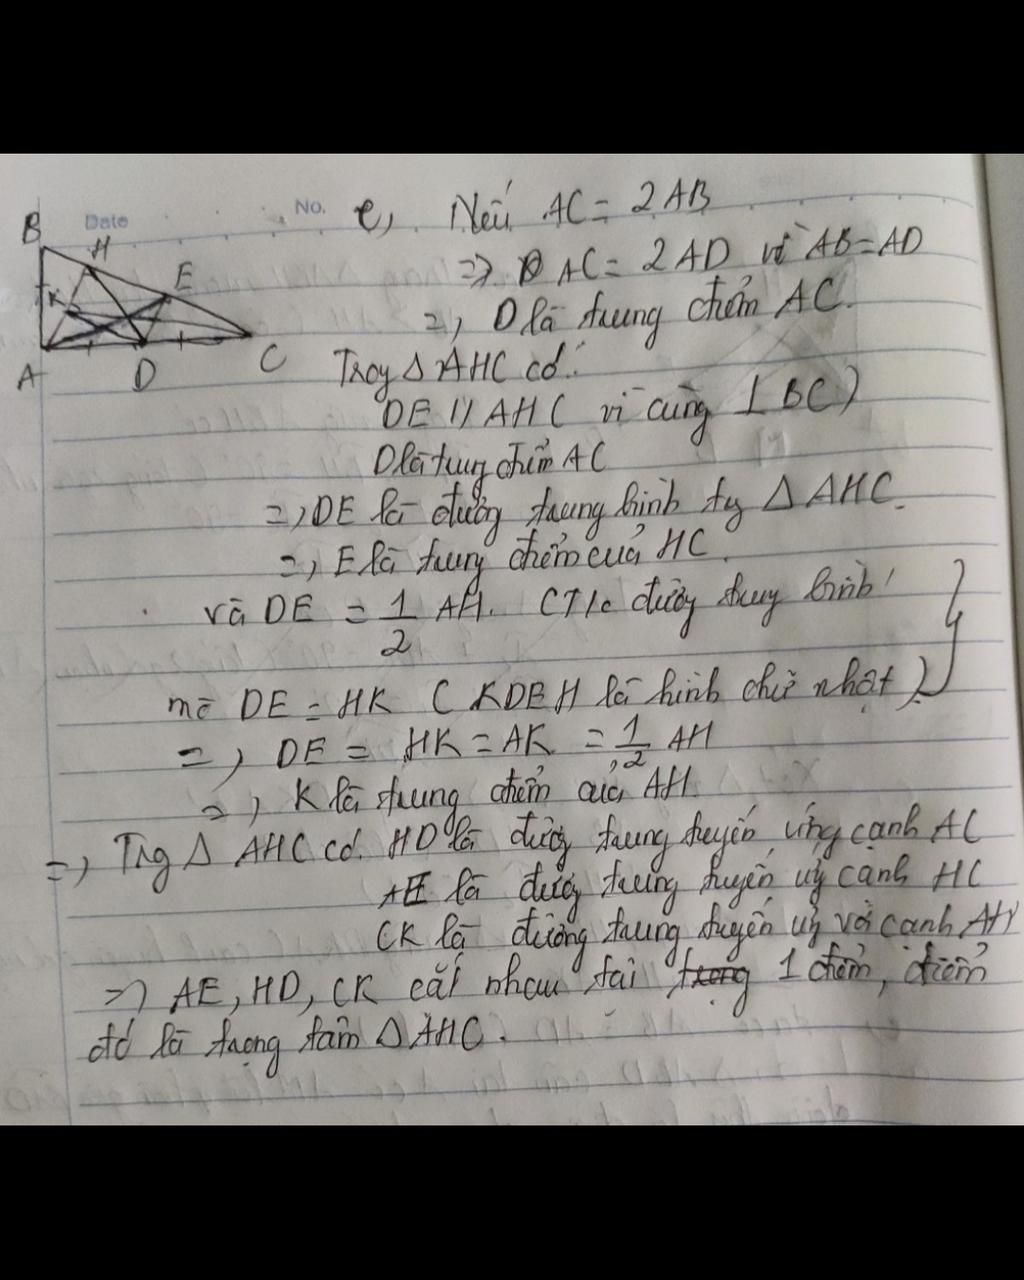 Date
No.
B
H
E
K
A
D
C
e, Nếu AC = 2AB
=> AC = 2AD vì AB = AD
=> D là trung điểm AC.
Trog Δ AHC có:
DE // AH ( vì cùng ⊥ BC )
D là trung điểm AC
=> DE là đường trung bình Δ AHC.
=> E là trung điểm của HC.
và DE = 1/2 AH. ( T/c đường trung bình
mà DE = HK ( KDEH là hình chữ nhật )
=> DE = HK = AK = 1/2 AH
=> K là trung điểm của AH.
=> Trg Δ AHC có. HD là đường trung tuyến ứng cạnh AC
AE là đường trung tuyến ứng cạnh HC
CK là đường trung tuyến ứng với cạnh AH
=> AE, HD, CK cắt nhau tại 1 điểm, điểm
đó là trọng tâm Δ AHC.